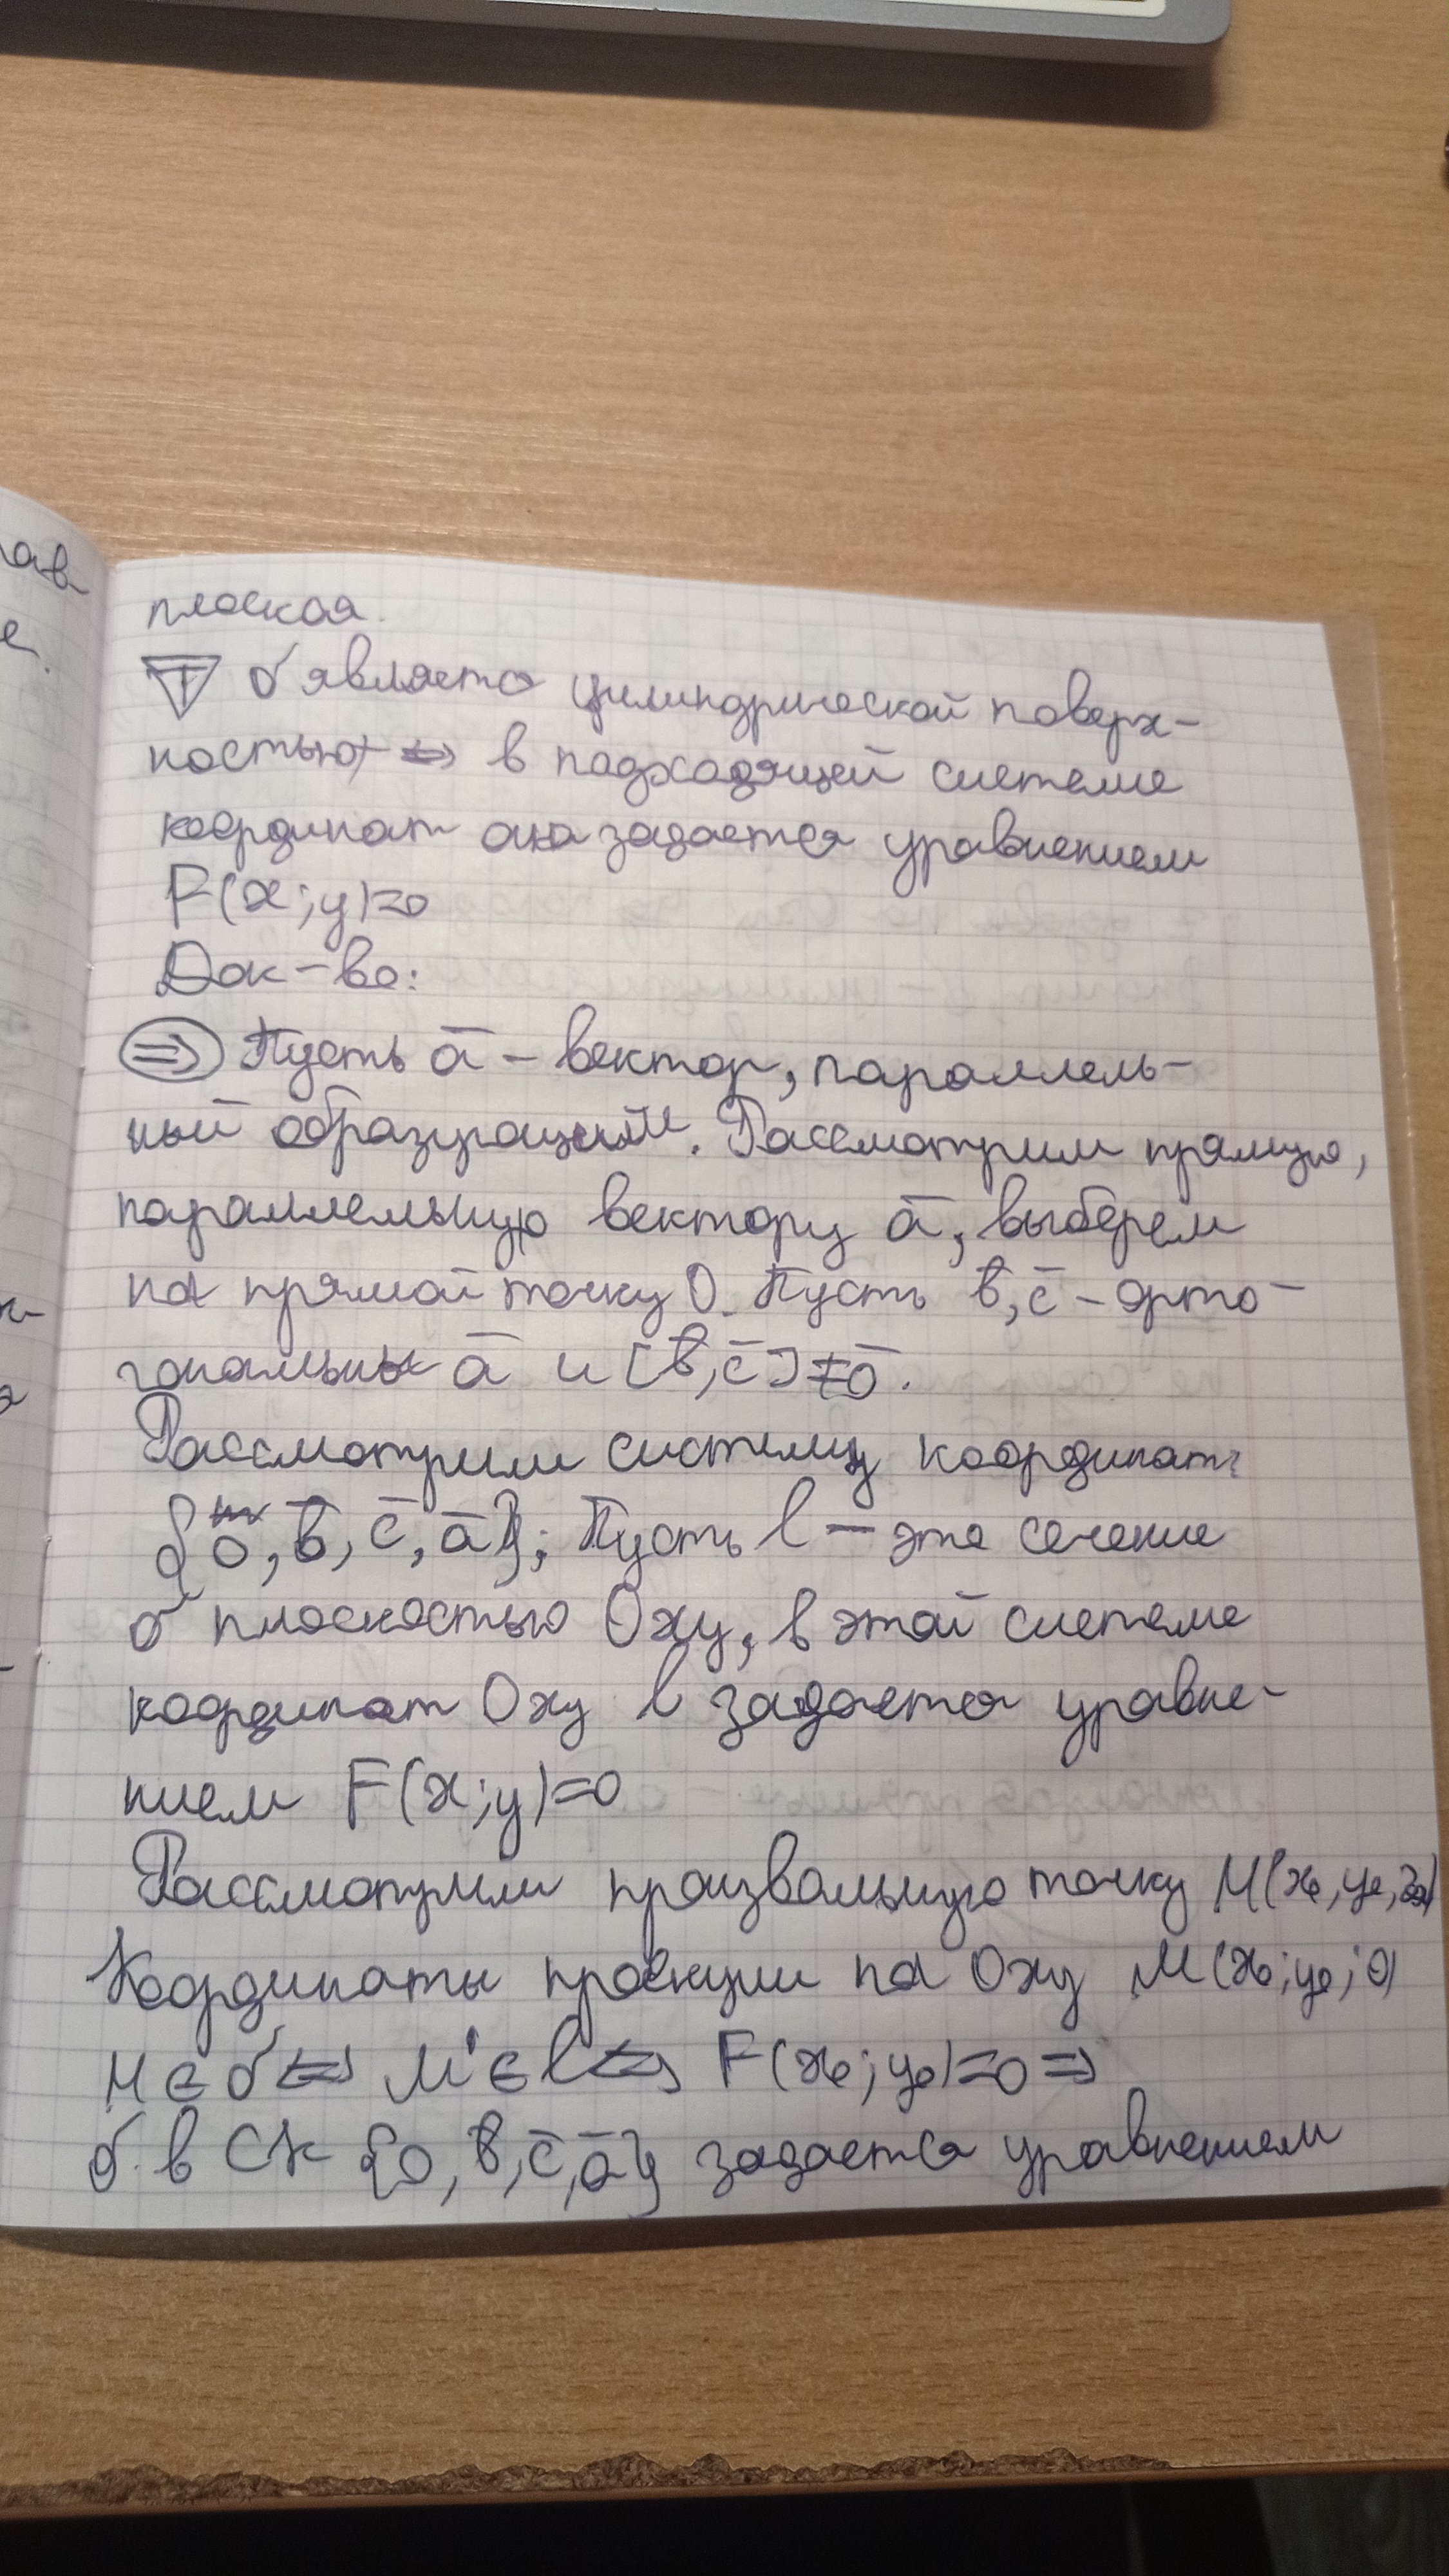 плоская.
Т σ является цилиндрической поверх-
ностью ⇔ в подходящей системе
координат она задается уравнением
F(x;y)=0
Док-во:
⇒ Пусть ā – вектор, параллель-
ный образующим. Рассмотрим прямую,
параллельную вектору ā, выберем
на прямой точку О. Пусть b̄, c̄ – орто-
гональны ā и [b̄, c̄] ≠ ō.
Рассмотрим систему координат:
{О, b̄, c̄, ā}; Пусть l – это сечение
σ плоскостью Oxy, в этой системе
координат Oxy l задается уравне-
нием F(x;y)=0
Рассмотрим произвольную точку M(x₀, y₀, z₀)
Координаты проекции на Oxy M(x₀; y₀; 0)
M ∈ σ ⇔ M' ∈ l ⇔ F(x₀; y₀)=0 ⇒
σ в СК {О, b̄, c̄, ā} задается уравнением